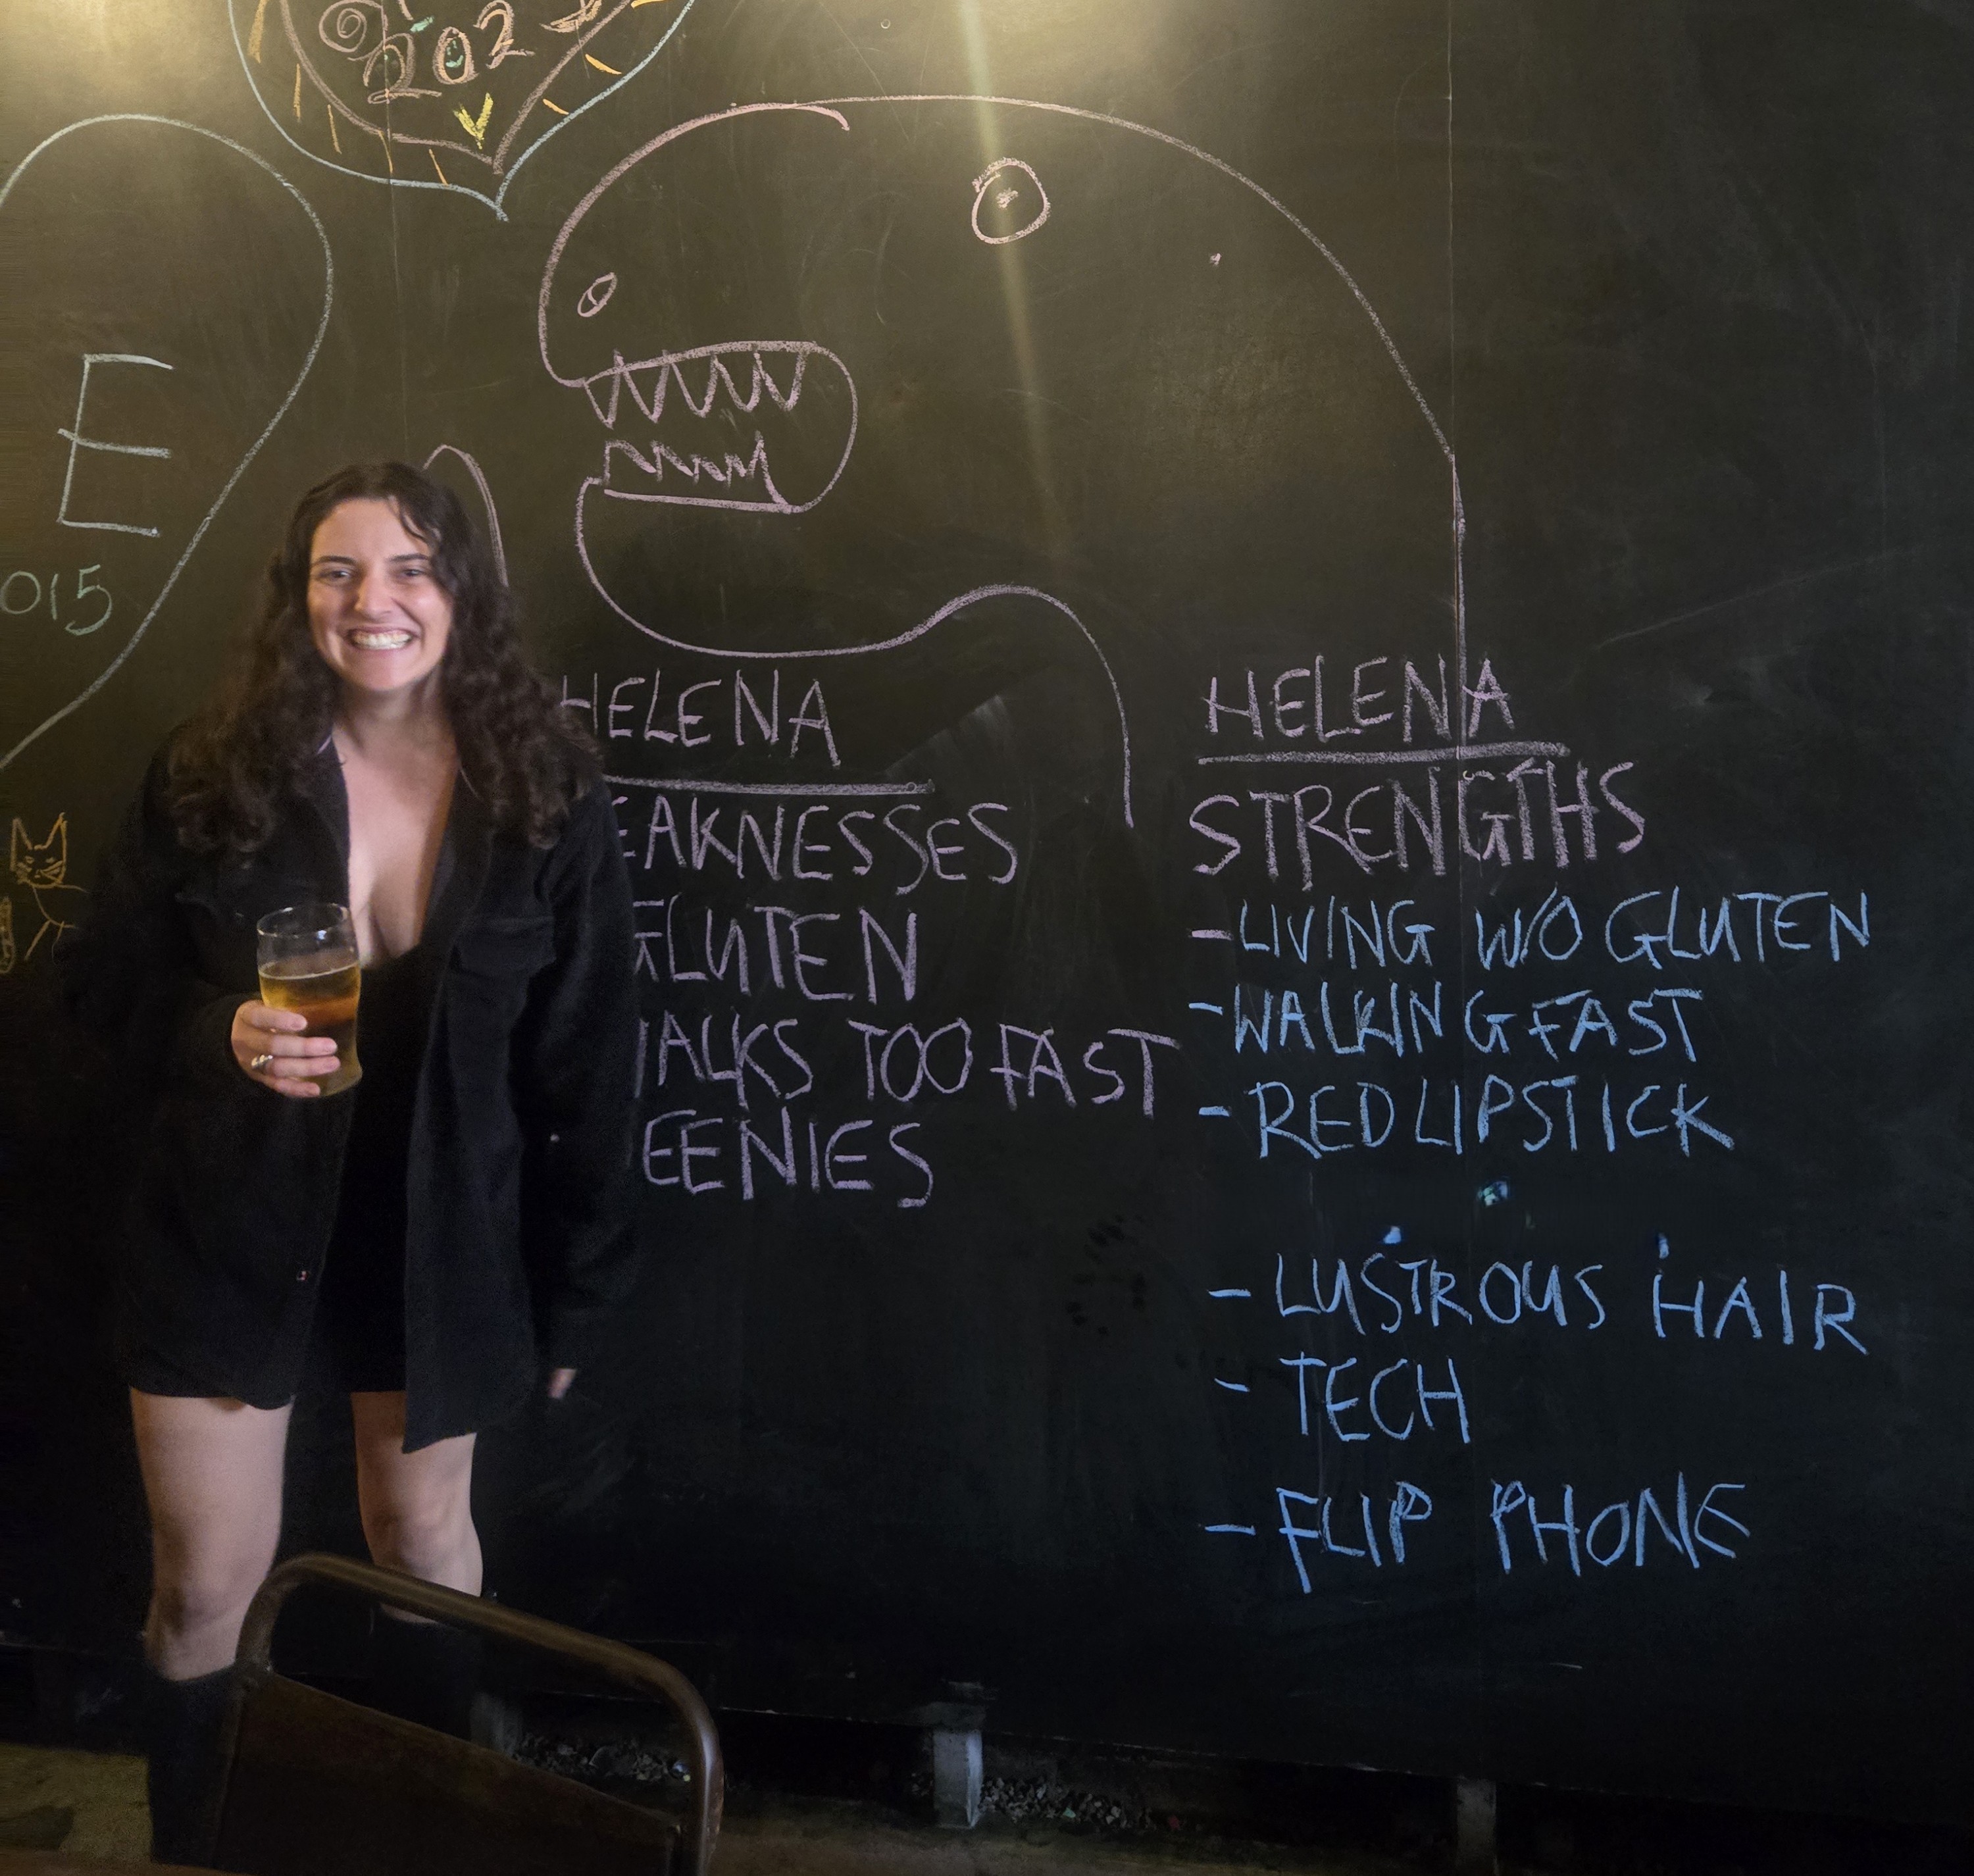 202
E
015
HELENA
EAKNESSES
GLUTEN
WALKS TOO FAST
EENIES
HELENA
STRENGTHS
-LIVING W/O GLUTEN
-WALKING FAST
-RED LIPSTICK
-LUSTROUS HAIR
-TECH
-FLIP PHONE